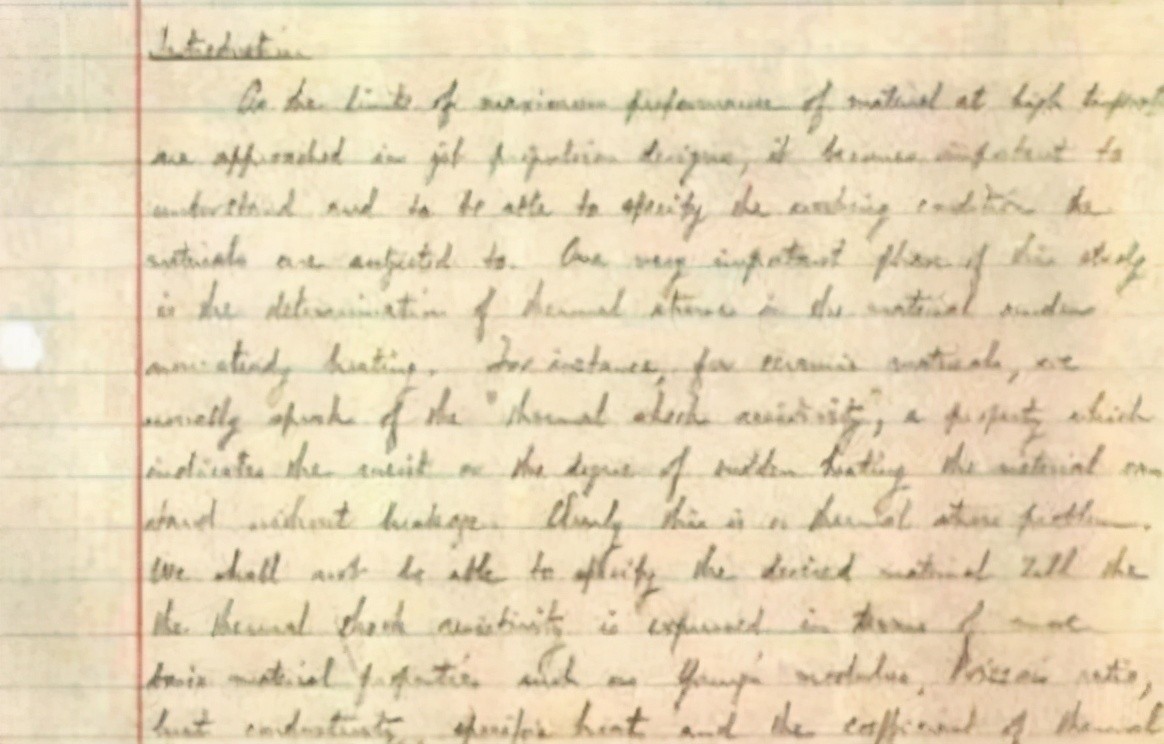 Introduction
As the limits of maximum performance of material at high
are approached in jet propulsion designs, it becomes important to
understand and to be able to specify the working condition the
materials are subjected to. One very important phase of this study
is the determination of thermal stresses in the material under
non-steady heating. For instance, for ceramic materials, we
usually speak of the "thermal shock resistivity", a property which
indicates the merit or the degree of sudden heating the material can
stand without breakage. Clearly this is a thermal stress problem.
We shall not be able to specify the desired material till the
the thermal shock resistivity is expressed in terms of more
basic material properties such as Young's modulus, Poisson's ratio,
heat conductivity, specific heat and the coefficient of thermal